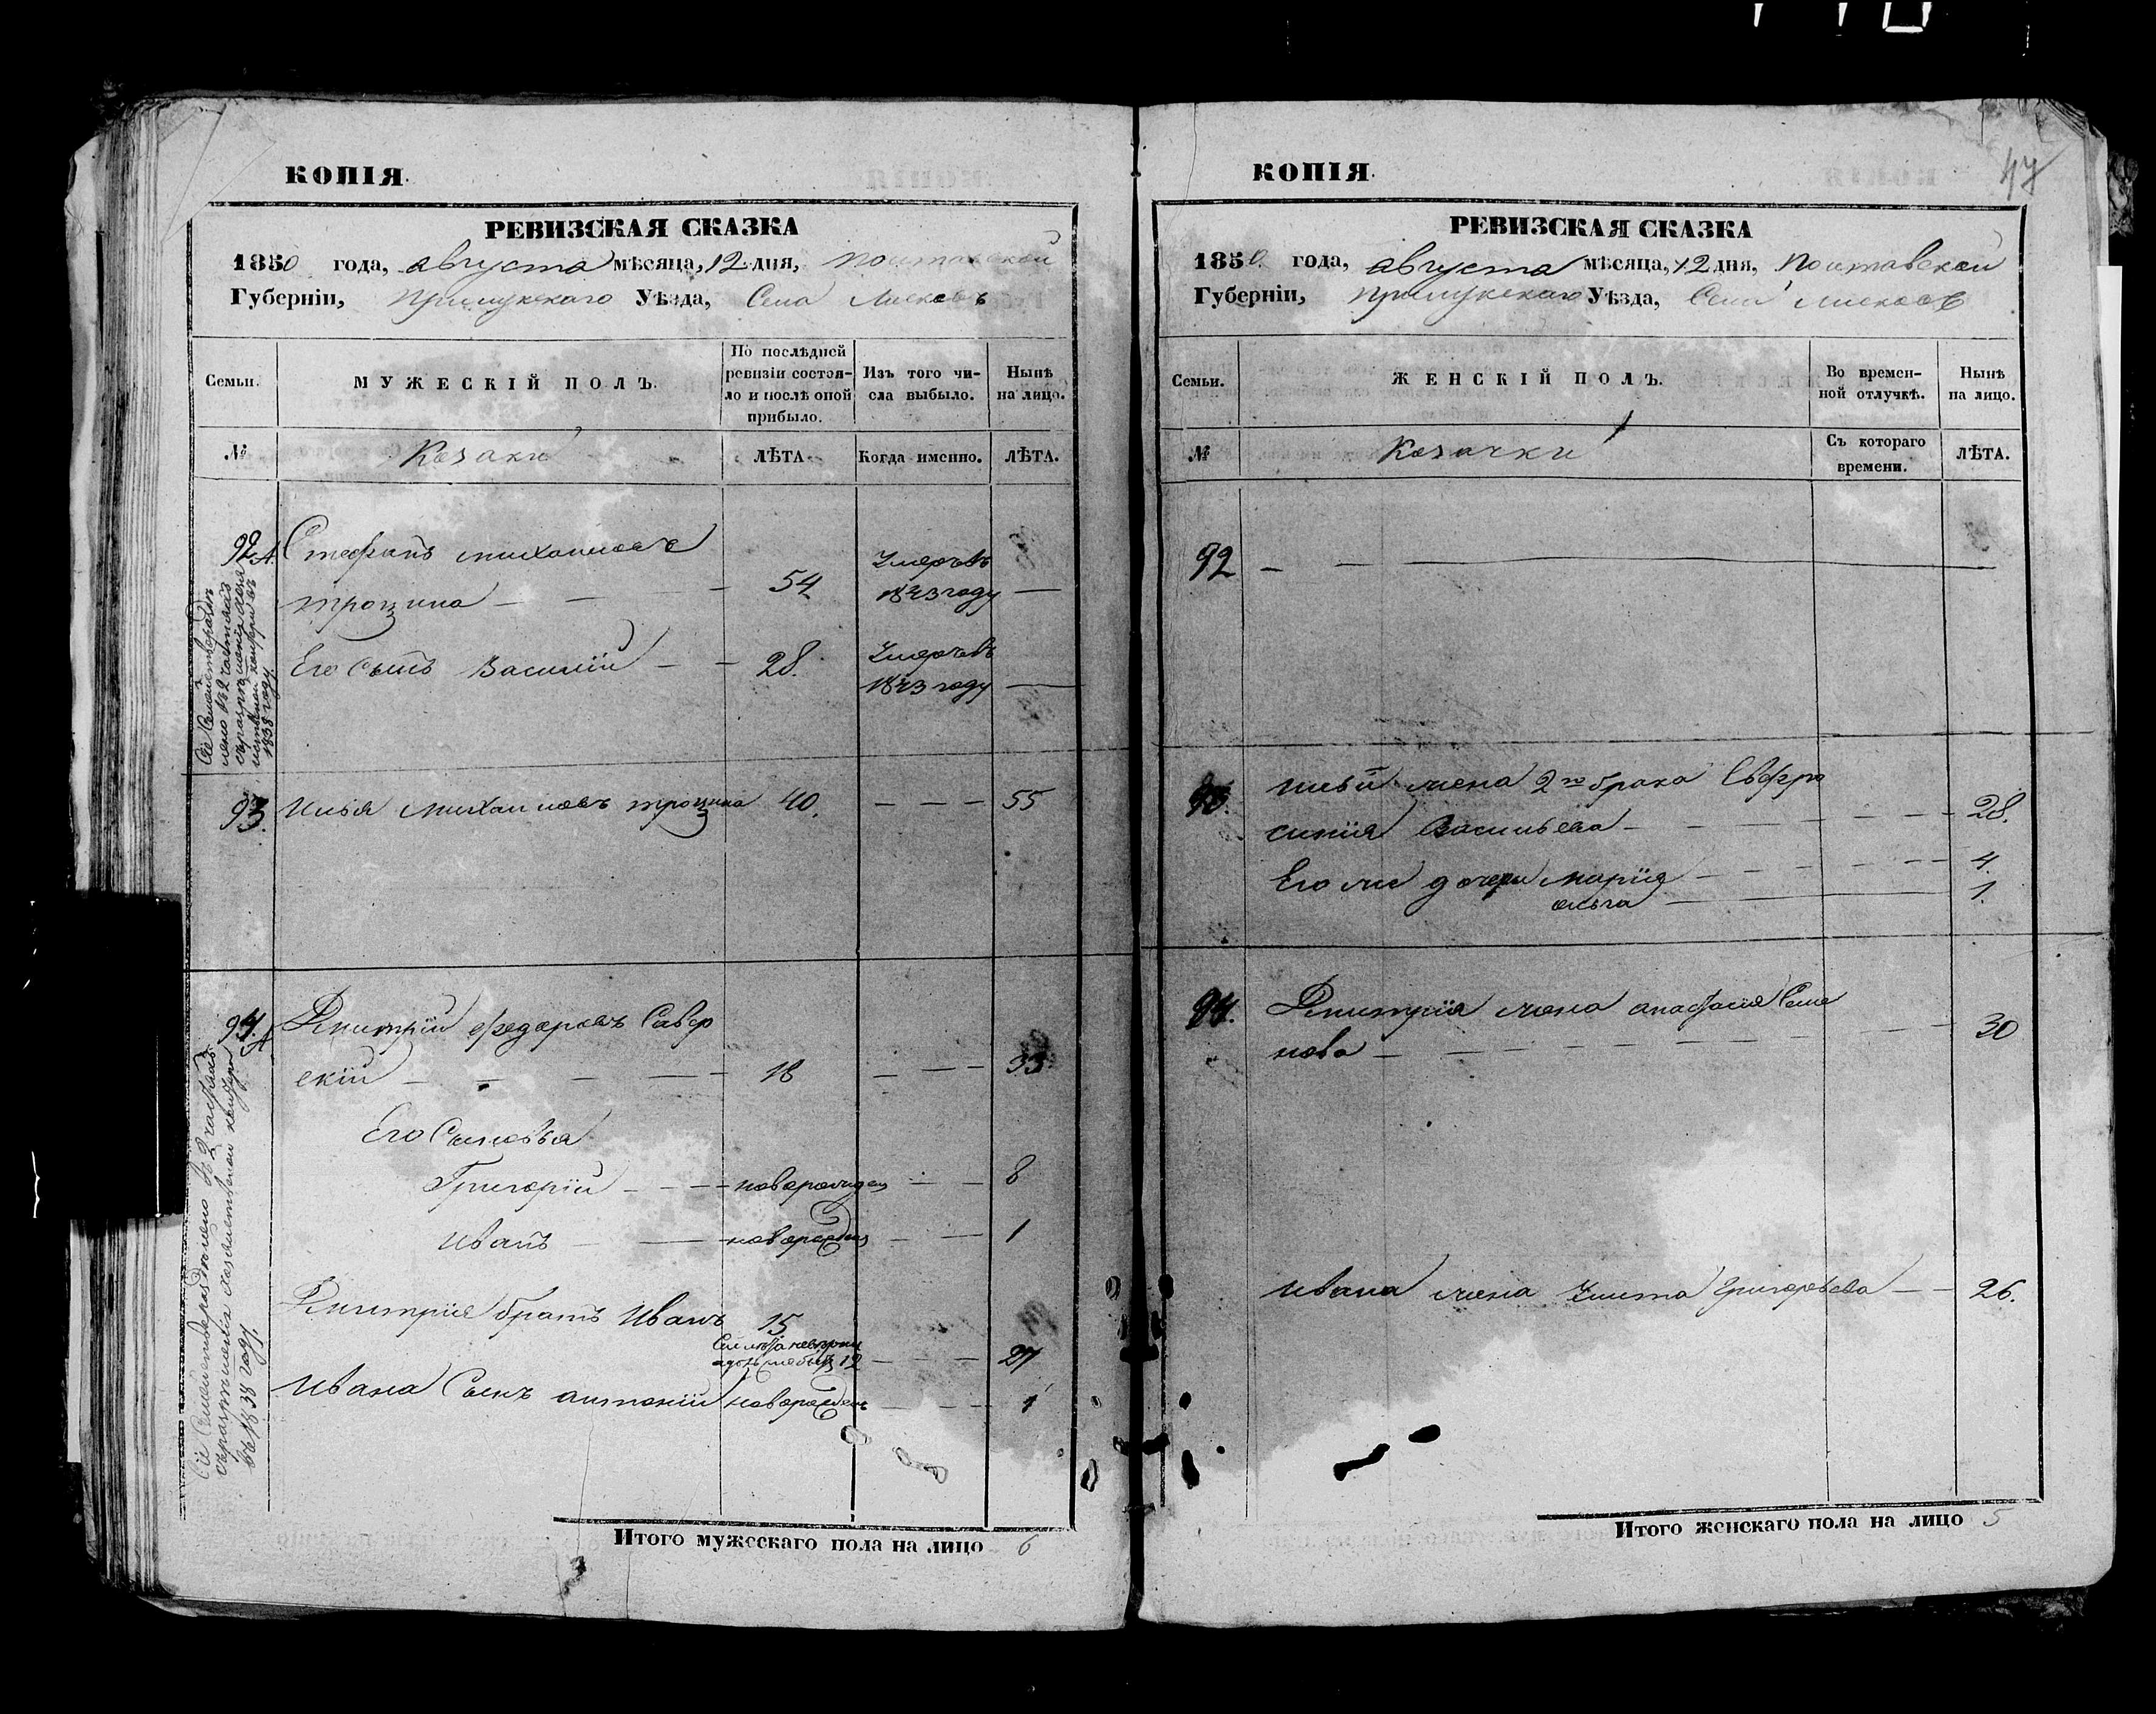 КОПІЯ.
РЕВИЗСКАЯ СКАЗКА
1850 года, августа мѣсяца, 12 дня, Полтавской
Губерніи, Прилукскаго Уѣзда, Села
Семьи.
МУЖЕСКІЙ ПОЛЪ.
По послѣдней
ревизіи состоя-
ло и послѣ оной
прибыло.
Изъ того чи-
сла выбыло.
Нынѣ
на лицо.
№
Козаки
ЛѢТА
Когда именно.
ЛѢТА.
92 А. Стефанъ Михаиловъ
Трощина — — — 54 Умеръ въ 1843 году —
Его Сынъ Василій — — 28. Умеръ въ
1843 году —
93. Илья Михаиловъ Трощина 40. — — — 55
94. А Дмитрій Федоровъ Север
скій — — — — — 18 — — — 33
Его Сыновья
Григорій — — — — новорожден — — 8
Иванъ — — — новорожден — — 1
Дмитрія братъ Иванъ 15
12 — — — 27
Ивана Сынъ Антоній новорожден — — — 1
въ 1838 году.
Итого мужескаго пола на лицо 6
47
КОПІЯ.
РЕВИЗСКАЯ СКАЗКА
1850 года, августа мѣсяца, 12 дня, Полтавской
Губерніи, Прилукскаго Уѣзда, Села
Семьи.
ЖЕНСКІЙ ПОЛЪ.
Во времен-
ной отлучкѣ.
Нынѣ
на лицо.
№
Козачки
Съ котораго
времени.
ЛѢТА.
92 — — —
93. Ильи жена 2го брака Евфро
синія Васильева — — — — — — — 28.
Его же дочери Марія — — — — — 4.
Ольга — — 1.
94. Дмитрія жена Анастасія Семе
нова — — — — — — — — — 30
Ивана жена Улита Григорьева — — 26.
Итого женскаго пола на лицо 5